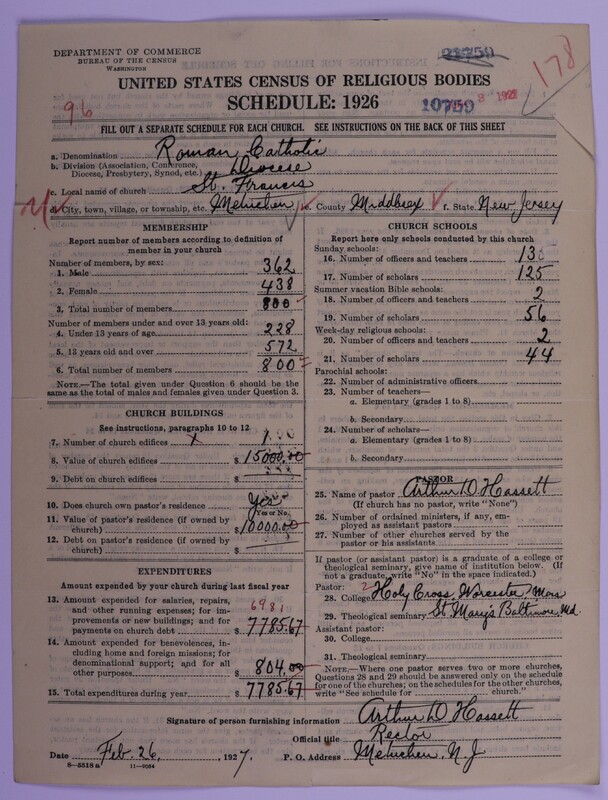 DEPARTMENT OF COMMERCE
BUREAU OF THE CENSUS
WASHINGTON
22250
178
UNITED STATES CENSUS OF RELIGIOUS BODIES
SCHEDULE: 1926
96
10759
8 1927
FILL OUT A SEPARATE SCHEDULE FOR EACH CHURCH. SEE INSTRUCTIONS ON THE BACK OF THIS SHEET
a. Denomination Roman Catholic
b. Division (Association, Conference, Diocese, Presbytery, Synod, etc.) Diocese
c. Local name of church St. Francis
d. City, town, village, or township, etc. Metuchen e. County Middlesex f. State New Jersey
MEMBERSHIP
Report number of members according to definition of
member in your church
Number of members, by sex:
1. Male 362
2. Female 438
3. Total number of members 800
Number of members under and over 13 years old:
4. Under 13 years of age 228
5. 13 years old and over 572
6. Total number of members 800
NOTE.—The total given under Question 6 should be
same as the total of males and females given under Question 3.
CHURCH BUILDINGS
See instructions, paragraphs 10 to 12
7. Number of church edifices x 1
8. Value of church edifices $ 15000.00
9. Debt on church edifices $
10. Does church own pastor's residence Yes
(Yes or No)
11. Value of pastor's residence (if owned by
church) $ 10000.00
12. Debt on pastor's residence (if owned by
church) $
EXPENDITURES
Amount expended by your church during last fiscal year
13. Amount expended for salaries, repairs,
and other running expenses; for im-
provements or new buildings; and for
payments on church debt $ 7785.67
6981
14. Amount expended for benevolences, in-
cluding home and foreign missions; for
denominational support; and for all
other purposes $ 804.00
15. Total expenditures during year $ 7785.67
CHURCH SCHOOLS
Report here only schools conducted by this church
Sunday schools:
16. Number of officers and teachers 13
17. Number of scholars 125
Summer vacation Bible schools:
18. Number of officers and teachers 2
19. Number of scholars 56
Week-day religious schools:
20. Number of officers and teachers 2
21. Number of scholars 44
Parochial schools:
22. Number of administrative officers
23. Number of teachers—
a. Elementary (grades 1 to 8)
b. Secondary
24. Number of scholars—
a. Elementary (grades 1 to 8)
b. Secondary
PASTOR
25. Name of pastor Arthur D Hassett
(If church has no pastor, write "None")
26. Number of ordained ministers, if any, em-
ployed as assistant pastors
27. Number of other churches served by the
pastor or his assistants
If pastor (or assistant pastor) is a graduate of a college or
theological seminary, give name of institution below. (If
not a graduate, write "No" in the space indicated.)
Pastor:
28. College Holy Cross, Worcester, Mass
29. Theological seminary St Mary's Baltimore, Md.
Assistant pastor:
30. College
31. Theological seminary
NOTE.—Where one pastor serves two or more churches,
Questions 28 and 29 should be answered only on the schedule
for one of the churches; on the schedules for the other churches,
write "See schedule for church."
Signature of person furnishing information Arthur D Hassett
Official title Rector
Date Feb. 26, 1927. P. O. Address Metuchen, N. J
8—5318 a 11—9064